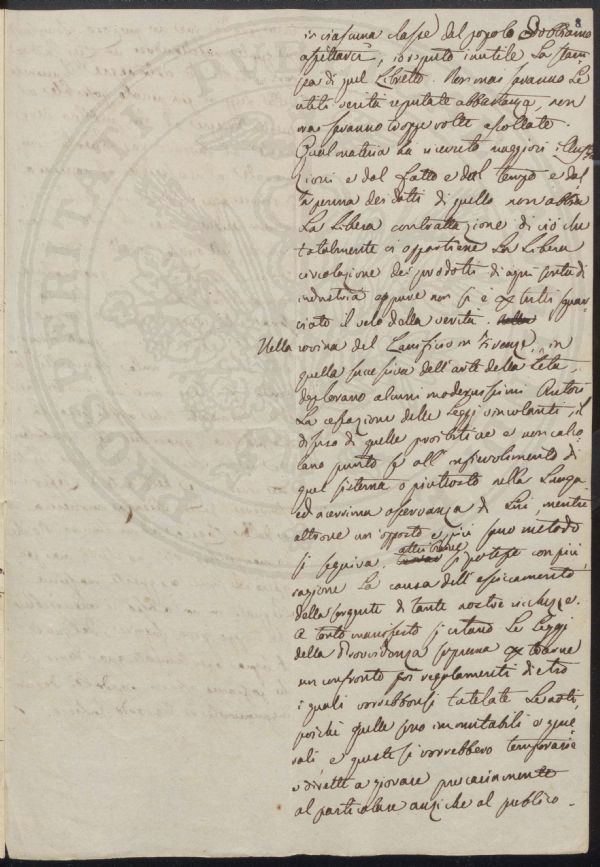 8
in ciascuna classe del popolo Dobbiamo
aspettarci, io reputo inutile la stam
pa di quel Libretto. Non mai saranno le
utili verità reputate abbastanza, non
mai saranno troppe volte ascoltate.
Qual materia ha ricevuto maggiori
zioni e dal fatto e dal tempo e dal
la penna dei dotti di quello non abbia
La Libera contrattazione di ciò che
totalmente ci appartiene La Libera
circolazione dei prodotti di ogni sorta di
industria eppure non si è tutti squar
ciato il velo della verità.
Nella rovina del Lanificio in Firenze, in
quella successiva dell'arte della Seta,
deplorano alcuni modernissimi Autori
La cessazione delle Leggi vincolanti, il
disuso di quelle proibitive e non calco
lano punto sù all'infievolimento di
quel sistema o piuttosto nella Lunga
ed acerrima osservanza di Lui, mentre
altrove un opposto e più sano metodo
si seguiva. attribuire si potesse con più
ragione La causa dell'essiccamento
della sorgente di tante nostre ricchezze.
A torto manifesto si citano Le Leggi
della Provvidenza suprema trarne
un confronto poi regolamenti dietro
i quali vorrebbonsi tutelate Le arti,
poichè quelle sono immutabili e gene
rali, e queste si vorrebbero temporarie
e dirette a giovare precariamente
al particolare anziche al publico.